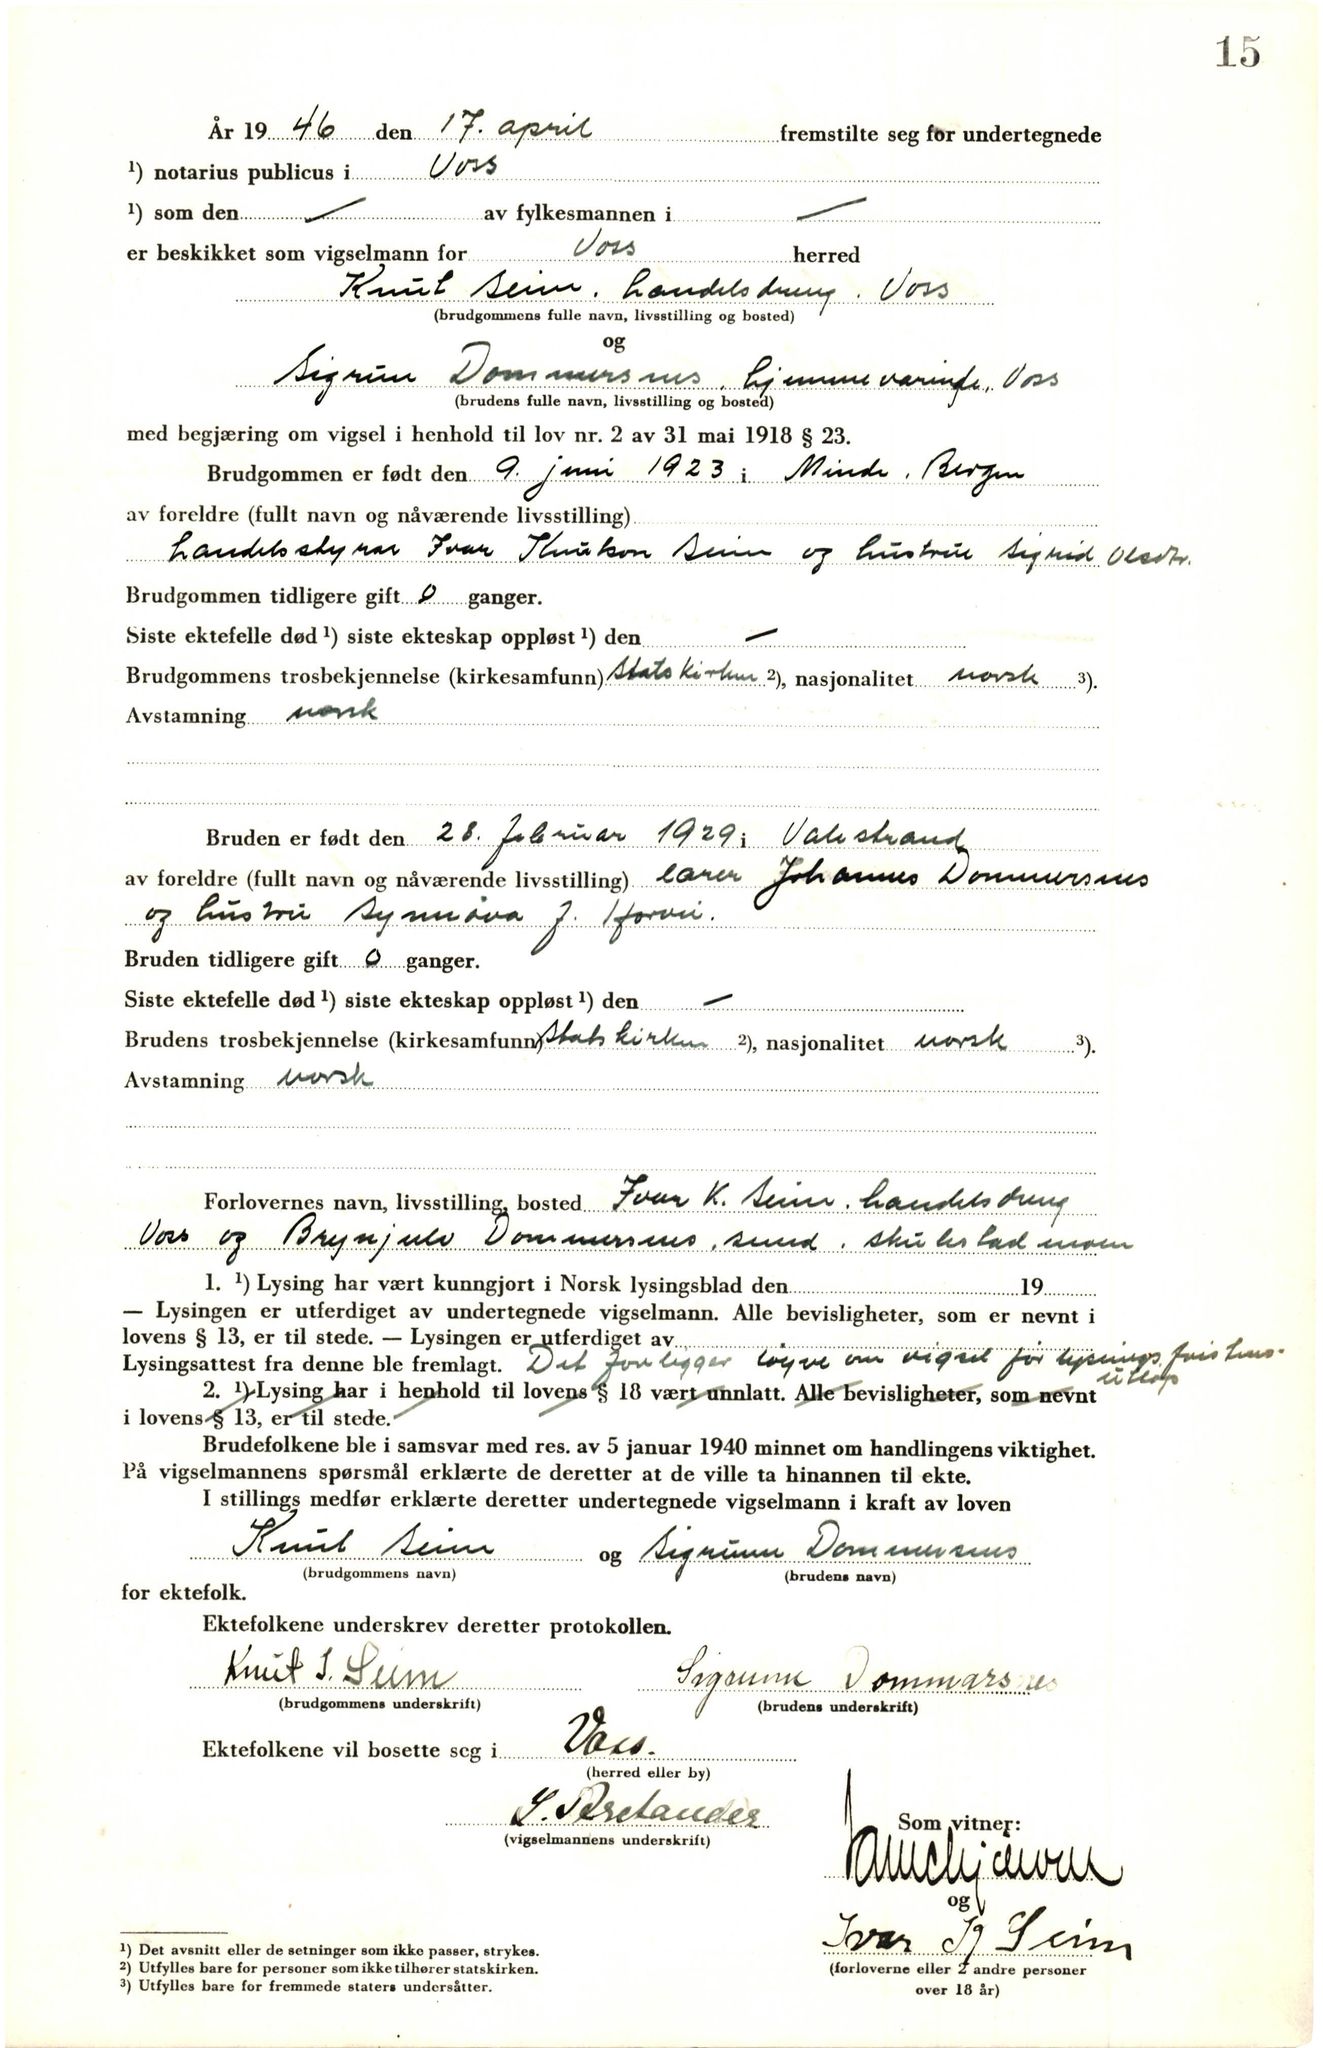 15
År 19 46 den 17. april fremstilte seg for undertegnede
¹) notarius publicus i Voss
¹) som den — av fylkesmannen i —
er beskikket som vigselmann for Voss herred
Knut Seim. handelsdreng. Voss
(brudgommens fulle navn, livsstilling og bosted)
og
Sigrun Dommersnes, hjemmeværende, Voss
(brudens fulle navn, livsstilling og bosted)
med begjæring om vigsel i henhold til lov nr. 2 av 31 mai 1918 § 23.
Brudgommen er født den 9. juni 1923 i Minde, Bergen
av foreldre (fullt navn og nåværende livsstilling)
handelsstyrar Ivar Knutson Seim og hustru Sigrid Olsdtr.
Brudgommen tidligere gift 0 ganger.
Siste ektefelle død ¹) siste ekteskap oppløst ¹) den —
Brudgommens trosbekjennelse (kirkesamfunn) Statskirken ²), nasjonalitet norsk ³).
Avstamning norsk
Bruden er født den 28. februar 1929 i Valestrand
av foreldre (fullt navn og nåværende livsstilling) lærer Johannes Dommersnes
og hustru Synnøva J.
Bruden tidligere gift 0 ganger.
Siste ektefelle død ¹) siste ekteskap oppløst ¹) den —
Brudens trosbekjennelse (kirkesamfunn) Statskirken ²), nasjonalitet norsk ³).
Avstamning norsk
Forlovernes navn, livsstilling, bosted Ivar K. Seim. handelsdreng
Voss og Brynjulv Dommersnes, smed. Skulestadmoen
1. ¹) Lysing har vært kunngjort i Norsk lysingsblad den 19
— Lysingen er utferdiget av undertegnede vigselmann. Alle bevisligheter, som er nevnt i
lovens § 13, er til stede. — Lysingen er utferdiget av
Lysingsattest fra denne ble fremlagt. Det foreligger løyve om vigsel før lysingsfristens
utløp
2. ¹) Lysing har i henhold til lovens § 18 vært unnlatt. Alle bevisligheter, som nevnt
i lovens § 13, er til stede.
Brudefolkene ble i samsvar med res. av 5 januar 1940 minnet om handlingens viktighet.
På vigselmannens spørsmål erklærte de deretter at de ville ta hinannen til ekte.
I stillings medfør erklærte deretter undertegnede vigselmann i kraft av loven
Knut Seim og Sigrunn Dommersnes
(brudgommens navn) (brudens navn)
for ektefolk.
Ektefolkene underskrev deretter protokollen.
Knut I. Seim Sigrunn Dommarsnes
(brudgommens underskrift) (brudens underskrift)
Ektefolkene vil bosette seg i Voss.
(herred eller by)
(vigselmannens underskrift)
Som vitner:
og
Ivar K Seim
(forloverne eller 2 andre personer
over 18 år)
¹) Det avsnitt eller de setninger som ikke passer, strykes.
²) Utfylles bare for personer som ikke tilhører statskirken.
³) Utfylles bare for fremmede staters undersåtter.